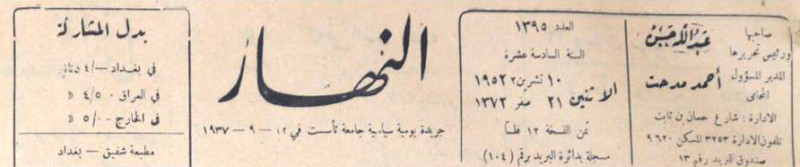 صاحبها
ورئيس تحريرها
عبدالله حسن
المدير المسؤول
المحامي
أحمد مدحت
الادارة : شارع حسان بن ثابت
تلفون الادارة ٣٢٥٣ المسكن ٩٦٢٠
صندوق البريد رقم ١٣
العدد ١٣٩٥
السنة السادسة عشرة
الاثنين
١٠ تشرين٢ ١٩٥٢
٢١ صفر ١٣٧٢
ثمن النسخة ١٢ فلساً
مسجلة بدائرة البريد برقم (١٠٤)
النهار
جريدة يومية سياسية جامعة تأسست في ١٢ - ٩ - ١٩٣٧
بدل المشاركة
في بغداد -/٤ دنانير
في العراق ٤/٥٠٠ »
في الخارج ٥/٠٠٠ »
مطبعة شفيق - بغداد